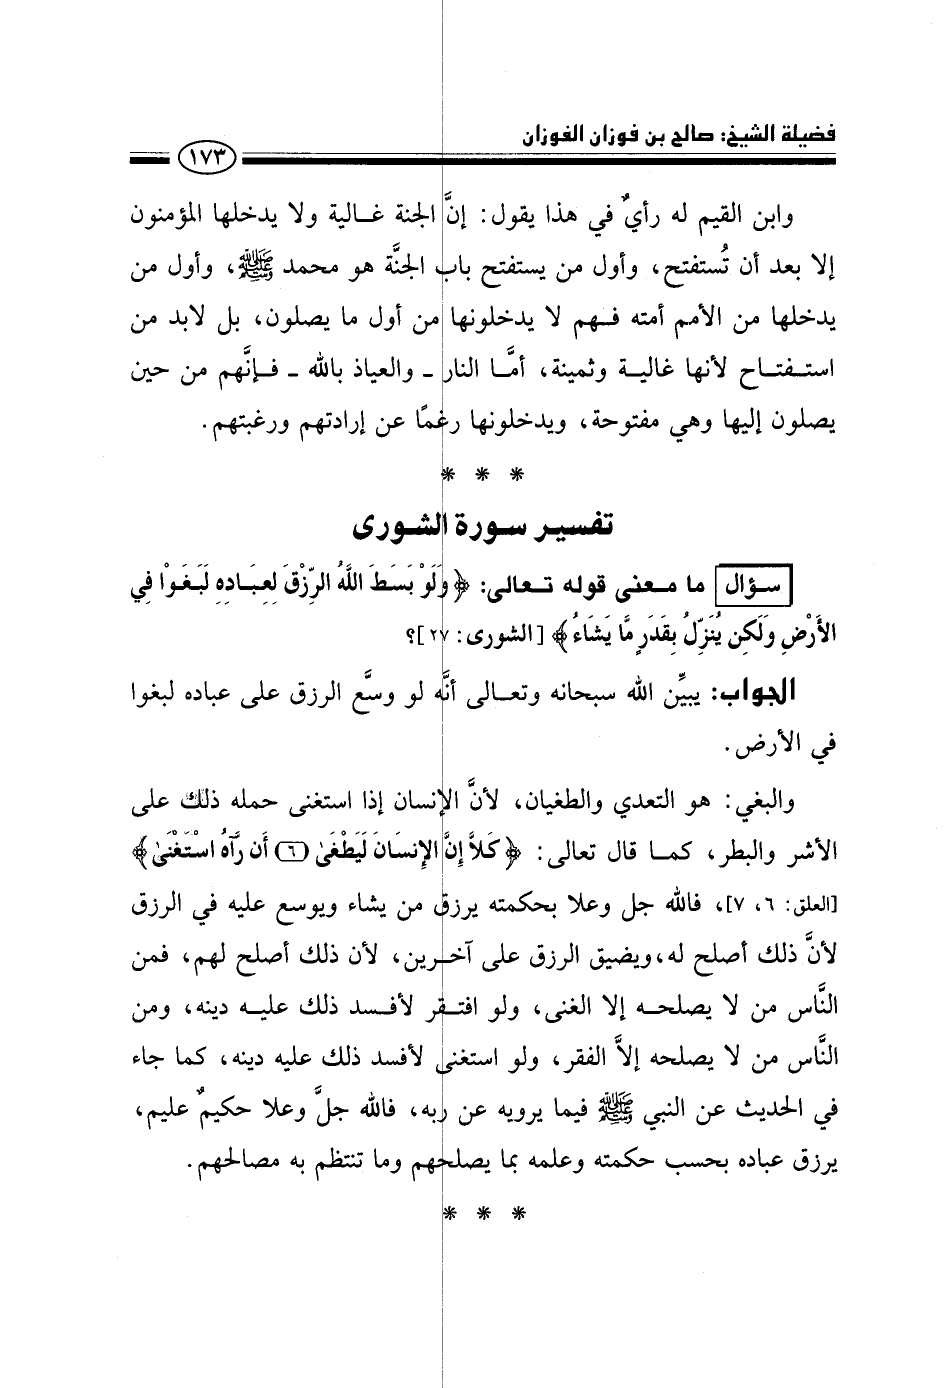 فضيلة الشيخ: صالح بن فوزان الفوزان
١٧٣
وابن القيم له رأيٌ في هذا يقول: إنَّ الجنة غـالية ولا يدخلها المؤمنون
إلا بعد أن تُستفتح، وأول من يستفتح باب الجنَّة هو محمد ﷺ، وأول من
يدخلها من الأمم أمته فـهم لا يدخلونها من أول ما يصلون، بل لابد من
استـفتـاح لأنها غاليـة وثمينة، أمَّا النار ـ والعياذ بالله ـ فـإنَّهم من حين
يصلون إليها وهي مفتوحة، ويدخلونها رغمًا عن إرادتهم ورغبتهم.
* * *
تفسير سورة الشورى
سؤال ما معنى قوله تعالى: ﴿وَلَوْ بَسَطَ اللَّهُ الرِّزْقَ لِعِبَادِهِ لَبَغَوْا فِي
الأَرْضِ وَلَكِن يُنَزِّلُ بِقَدَرٍ مَّا يَشَاءُ﴾ [الشورى: ٢٧]؟
الجواب: يبيِّن الله سبحانه وتعـالى أنَّه لو وسَّع الرزق على عباده لبغوا
في الأرض.
والبغي: هو التعدي والطغيان، لأنَّ الإنسان إذا استغنى حمله ذلك على
الأشر والبطر، كمـا قال تعالى: ﴿كَلاَّ إِنَّ الإِنسَانَ لَيَطْغَىٰ (٦) أَن رَّآهُ اسْتَغْنَىٰ﴾
[العلق: ٦، ٧]، فالله جل وعلا بحكمته يرزق من يشاء ويوسع عليه في الرزق
لأنَّ ذلك أصلح له، ويضيق الرزق على آخـرين، لأن ذلك أصلح لهم، فمن
النَّاس من لا يصلحـه إلا الغنى، ولو افتـقر لأفـسد ذلك عليـه دينه، ومن
النَّاس من لا يصلحه إلاَّ الفقر، ولو استغنى لأفسد ذلك عليه دينه، كما جاء
في الحديث عن النبي ﷺ فيما يرويه عن ربه، فالله جلَّ وعلا حكيمٌ عليم،
يرزق عباده بحسب حكمته وعلمه بما يصلحهم وما تنتظم به مصالحهم.
* * *